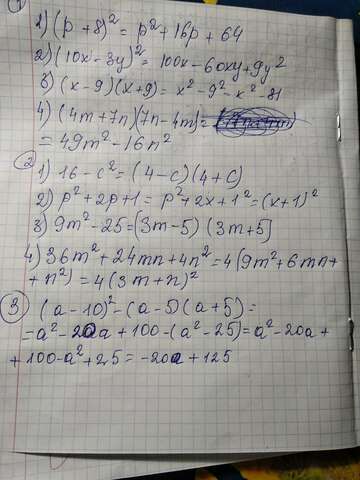 ①
1) (p + 8)² = p² + 16p + 64
2) (10x - 3y)² = 100x - 60xy + 9y²
3) (x - 9)(x + 9) = x² - 9² - x² - 81
4) (4m + 7n)(7n - 4m) =
= 49m² - 16n²
②
1) 16 - c² = (4 - c)(4 + c)
2) p² + 2p + 1 = p² + 2x + 1² = (x + 1)²
3) 9m² - 25 = (3m - 5) (3m + 5)
4) 36m² + 24mn + 4n² = 4(9m² + 6mn +
+ n²) = 4(3m + n)²
③ (a - 10)² - (a - 5)(a + 5) =
= a² - 20a + 100 - (a² - 25) = a² - 20a +
+ 100 - a² + 25 = -20a + 125